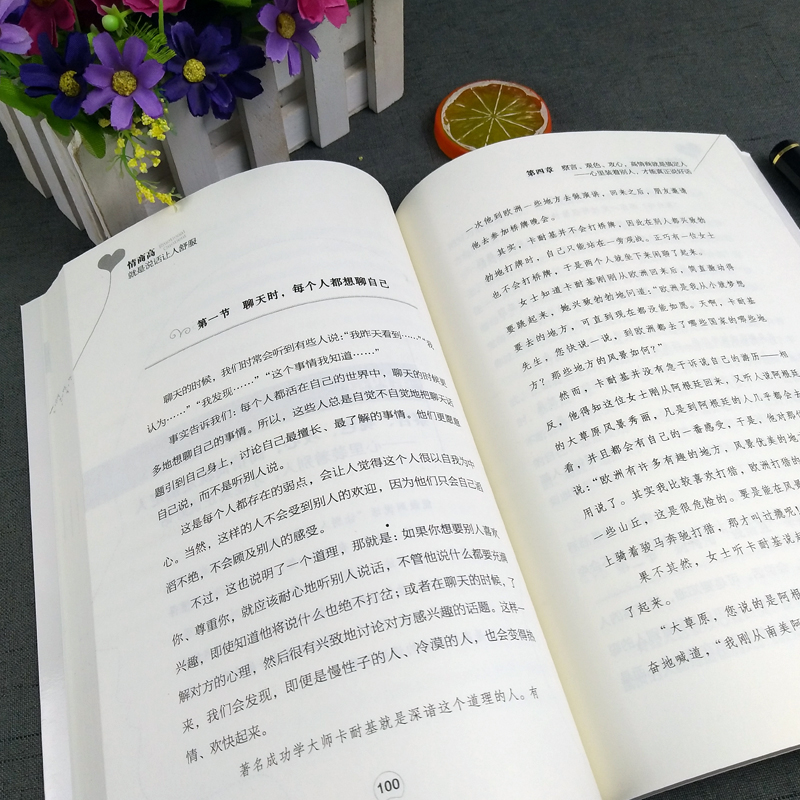 情商高
就是说话让人舒服
第一节 聊天时，每个人都想聊自己
聊天的时候，我们时常会听到有些人说：“我昨天看到……”“我
认为……”“我发现……”“这个事情我知道……”
事实告诉我们：每个人都活在自己的世界中，聊天的时候更
多地想聊自己的事情。所以，这些人总是自觉不自觉地把聊天话
题引到自己身上，讨论自己最擅长、最了解的事情。他们更愿意
自己说，而不是听别人说。
这是每个人都存在的弱点，会让人觉得这个人很以自我为中
心。当然，这样的人不会受到别人的欢迎，因为他们只会自己滔
滔不绝，不会顾及别人的感受。
不过，这也说明了一个道理，那就是：如果你想要别人喜欢
你、尊重你，就应该耐心地听别人说话，不管他说什么都要充满
兴趣，即使知道他将说什么也绝不打岔；或者在聊天的时候，了
解对方的心理，然后很有兴致地讨论对方感兴趣的话题。这样一
来，我们会发现，即便是慢性子的人、冷漠的人，也会变得热
情、欢快起来。
著名成功学大师卡耐基就是深谙这个道理的人。有
100
第四章 察言、观色、攻心，高情商就是搞定人
——心里装着别人，才能真正说好话
一次他到欧洲一些地方去做演讲，回来之后，朋友邀请
他去参加桥牌晚会。
其实，卡耐基并不会打桥牌，因此在别人都兴致勃
勃地打牌时，自己只能站在一旁观战。正巧有一位女士
也不会打桥牌，于是两个人就坐下来闲聊了起来。
女士知道卡耐基刚刚从欧洲回来后，简直激动得
要跳起来，她兴致勃勃地问道：“欧洲是我从小就梦想
要去的地方，可直到现在都没能如愿。天啊，卡耐基
先生，您快说一说，到欧洲都去了哪些国家的哪些地
方？那些地方的风景如何？”
然而，卡耐基并没有急于诉说自己的游历——相
反，他得知这位女士刚从阿根廷回来，又听人说阿根廷
的大草原风景秀丽，凡是到阿根廷的人几乎都会去
看，并且都会有自己的一番感受，于是，他对那位
说：“欧洲有许多有趣的地方，风景优美的地
用说了。其实我比较喜欢打猎，欧洲打猎的
一些山丘，这是很危险的。要是能在风景
上骑着骏马奔驰打猎，那才叫过瘾呢！
果不其然，女士听卡耐基说起
了起来。
“大草原，您说的是阿根
奋地喊道，“我刚从南美阿